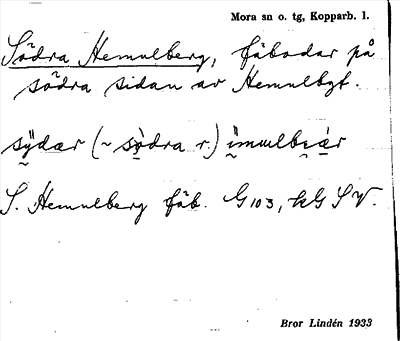 Mora sn o. tg, Kopparb. l.
Södra Hemulberg, fäbodar på
södra sidan av Hemulbgt.
sydær (~ södra r.)
S. Hemulberg fäb. G 103, kG SV.
Bror Lindén 1933